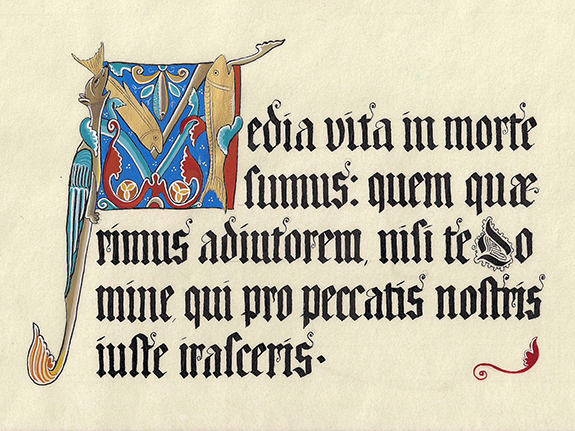 Media vita in morte
ſumus: quem quæ
rimus adiutorem, niſi te Do
mine, qui pro peccatis noſtris
iuſte iraſceris.